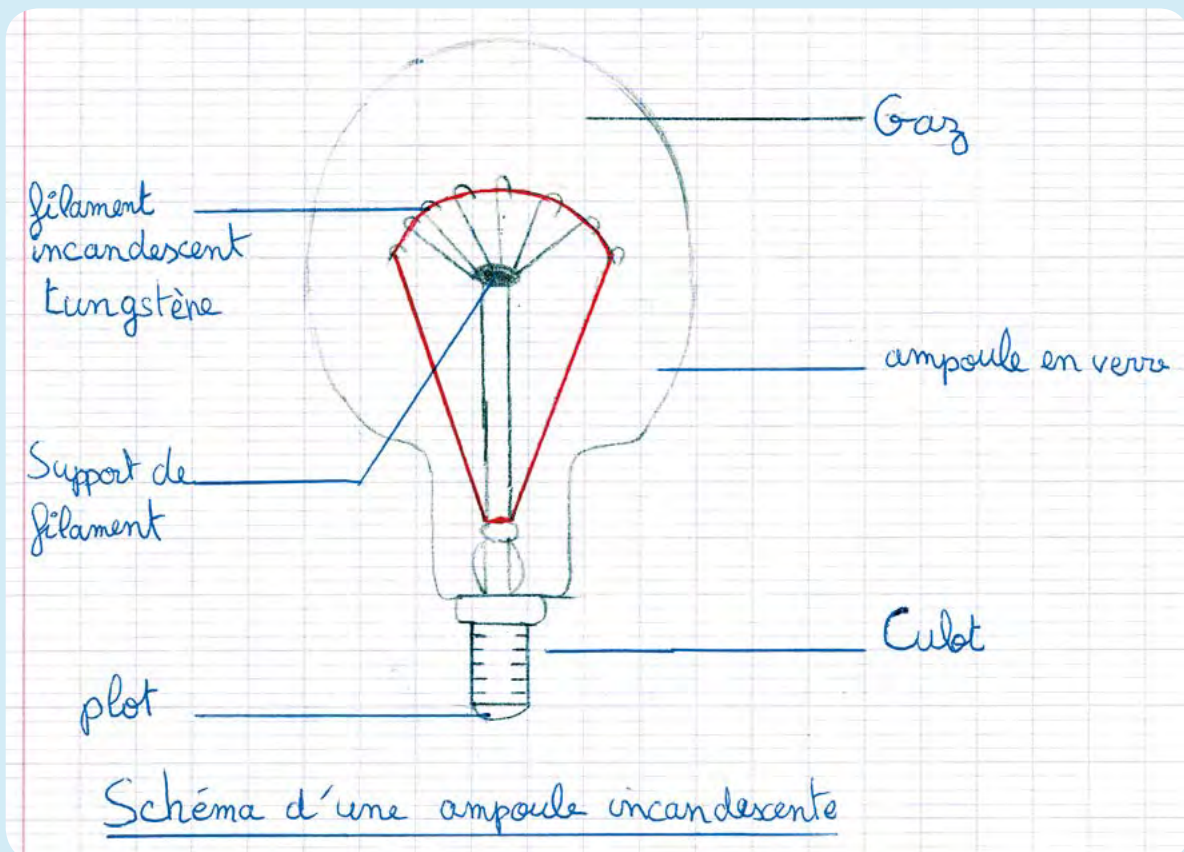 Gaz
filament
incandescent
tungstène
ampoule en verre
Support de
filament
Culot
plot
Schéma d'une ampoule incandescente